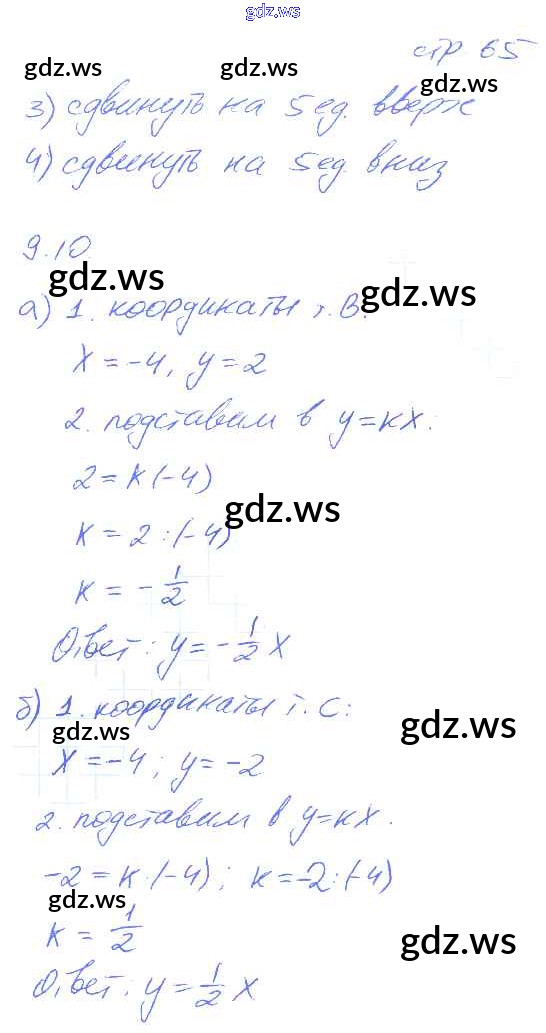 gdz.ws
стр 65
gdz.ws gdz.ws gdz.ws
3) сдвинуть на 5 ед. вверх
4) сдвинуть на 5 ед. вниз
9.10.
gdz.ws gdz.ws
а) 1. координаты т. В:
x = -4, y = 2
2. подставим в y = kx:
2 = k(-4)
gdz.ws
k = 2 : (-4)
k = - 1/2
Ответ: y = - 1/2 x
б) 1. координаты т. С:
gdz.ws gdz.ws
x = -4; y = -2
2. подставим в y = kx.
-2 = k·(-4); k = -2 : (-4)
gdz.ws
k = 1/2
gdz.ws
Ответ: y = 1/2 x